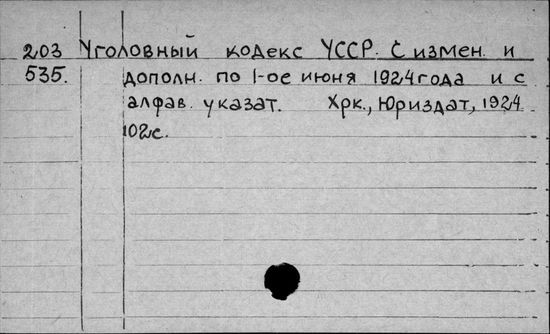 203 Уголовный кодекс УССР. С измен. и
535. дополн. по 1-ое июня 1924 года и с
алфав. указат. Хрк., Юриздат, 1924
102 с.